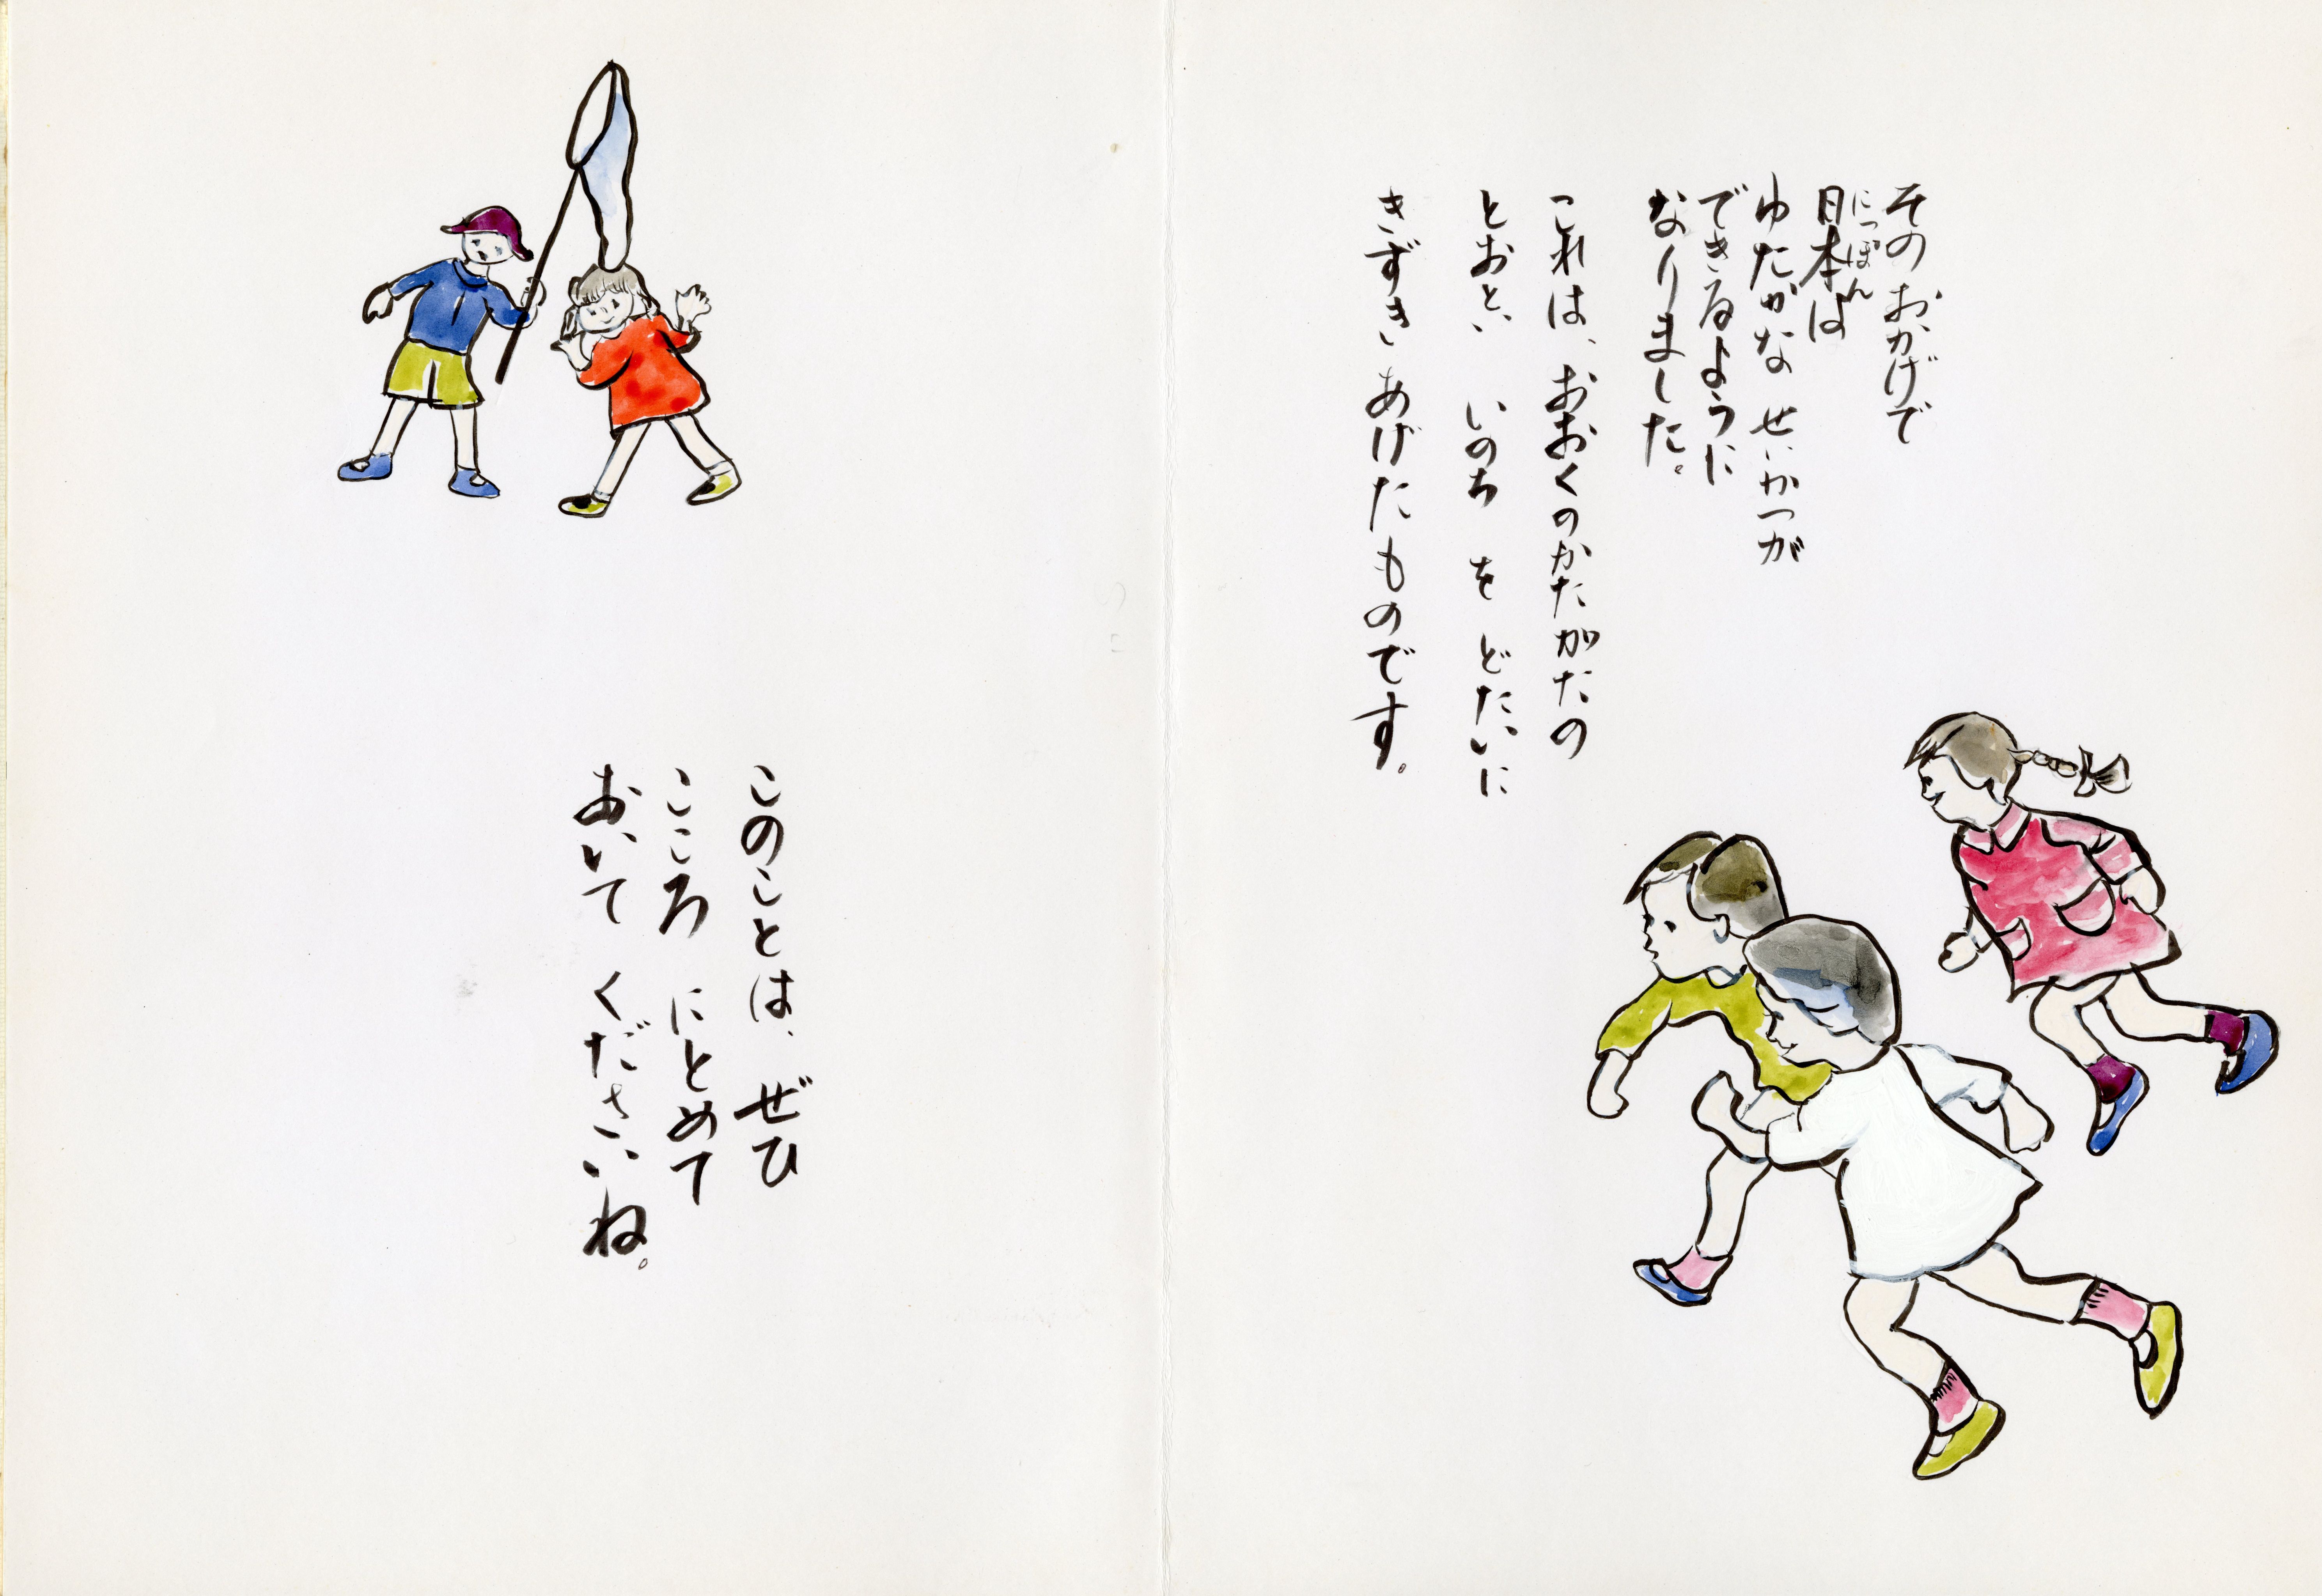 そのおかげで
日本は
にっぽん
ゆたかな せいかつが
できるように
なりました。
これは、おおくのかたがたの
とおとい いのち を どだいに
きずき あげたものです。
このことは、ぜひ
こころ にとめて
おいて くださいね。